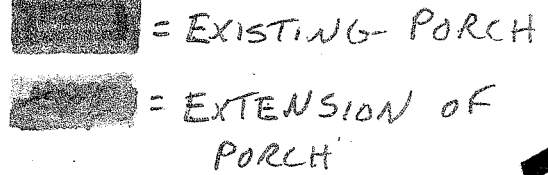 = EXISTING PORCH
= EXTENSION OF
PORCH